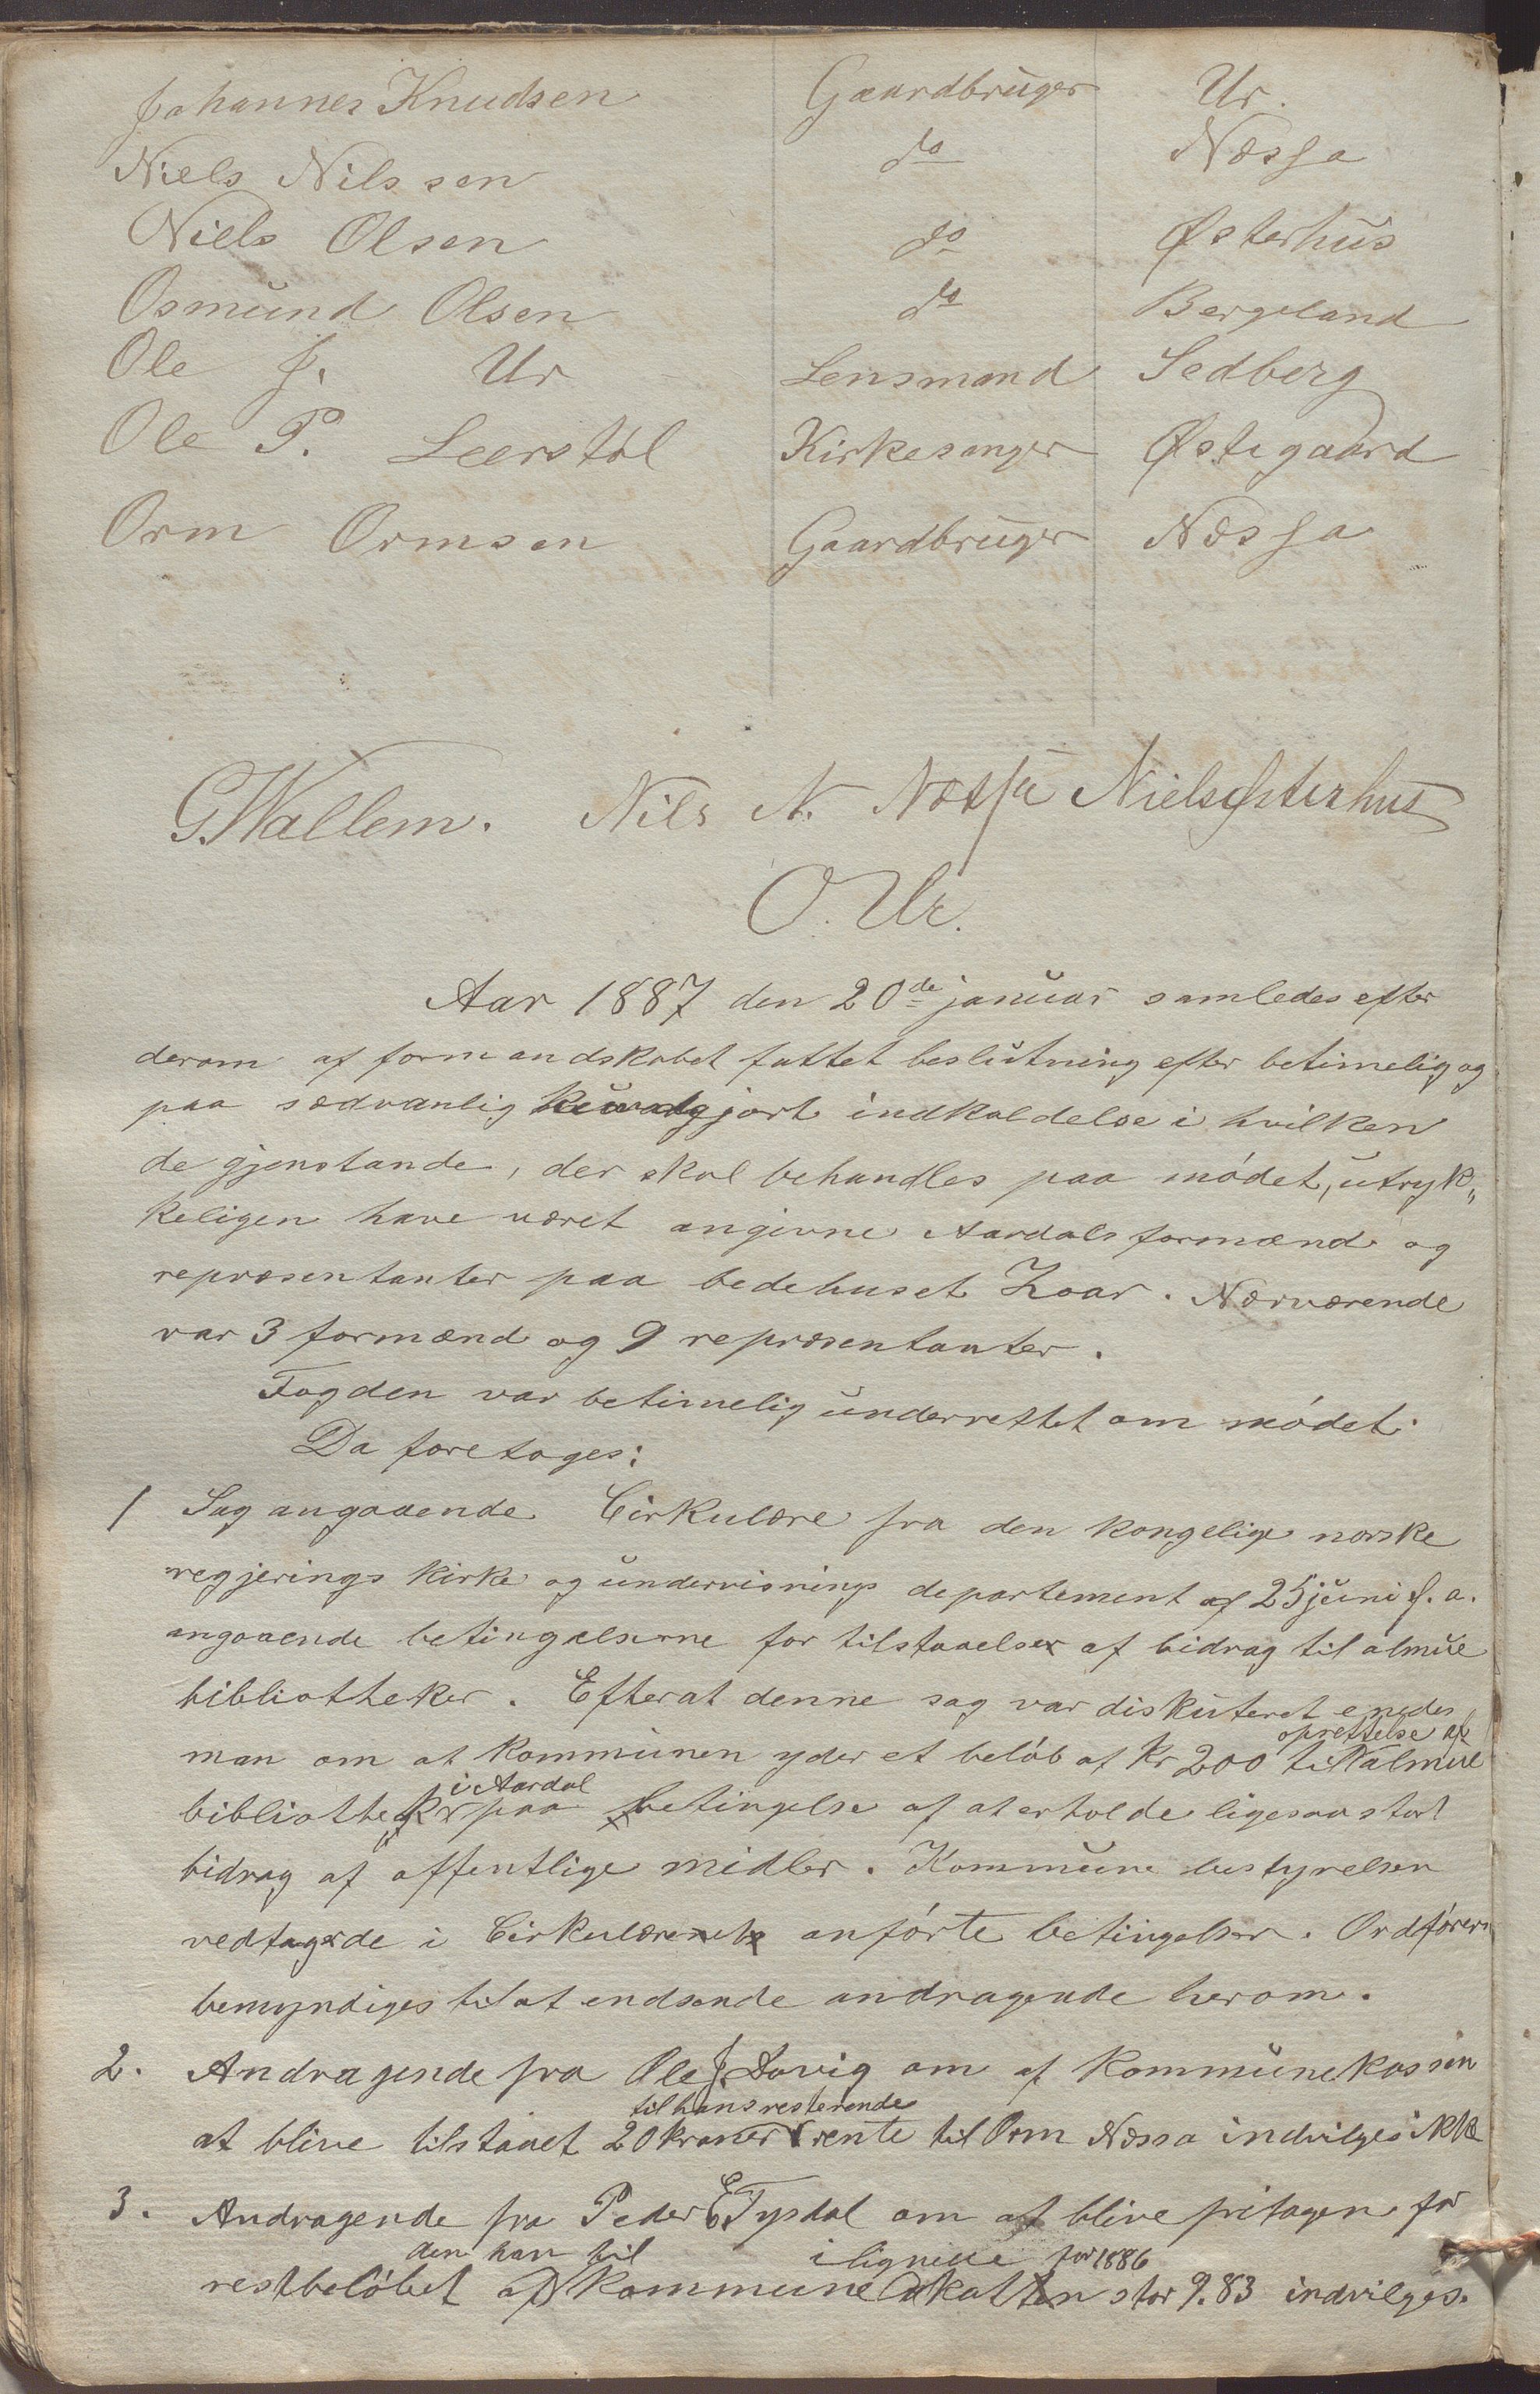 Johannes Knudsen Gaardbruger Ur.
Niels Nilssen do Næssa
Niels Olsen do Østerhus
Osmund Olsen do Bergeland
Ole J. Ur Lensmand Sedberg
Ole P. Leerstøl Kirkesanger Østegaard
Orm Ormsen Gaardbruger Næssa
G. Wallem. Nils N. Næssa Niels Østerhus
O. Ur.
Aar 1887 den 20de januar samledes efter
derom af formandskabet fattet beslutning efter betimelig og
paa sædvanlig kundgjort indkaldelse i hvilken
de gjenstande, der skal behandles paa mødet, utryk„
keligen have været angivne Aardals formænd og
repræsentanter paa bedehuset Zoar. Nærværende
var 3 formænd og 9 repræsentanter.
Fogden var betimelig underrettet om mødet.
Da foretoges:
1 Sag angaaende Cirkulære fra den kongelige norske
regjerings kirke og undervisnings departement af 25 juni f. a.
angaaende betingelserne for tilstaaelse af bidrag til almue
bibliotheker. Efterat denne sag var diskuteret enedes
man om at kommunen yder et beløb af Kr 200 til oprettelse af almue
bibliothek i Aardal paa betingelse af at erholde ligesaa stort
bidrag af offentlige midler. Kommune bestyrelsen
vedtager de i Cirkulæret anførte betingelser. Ordføreren
bemyndiges til at indsende andragende herom.
2. Andragende fra Ole J. Savig om af kommunekassen
at blive tilstaaet 20 kroner til hans resterende rente til Orm Næssa indvilges ikke
3. Andragende fra Peder E. Tysdal om at blive fritagen for
restbeløbet af den han til kommunen ilignede skat for 1886 stor 9.83 indvilges.